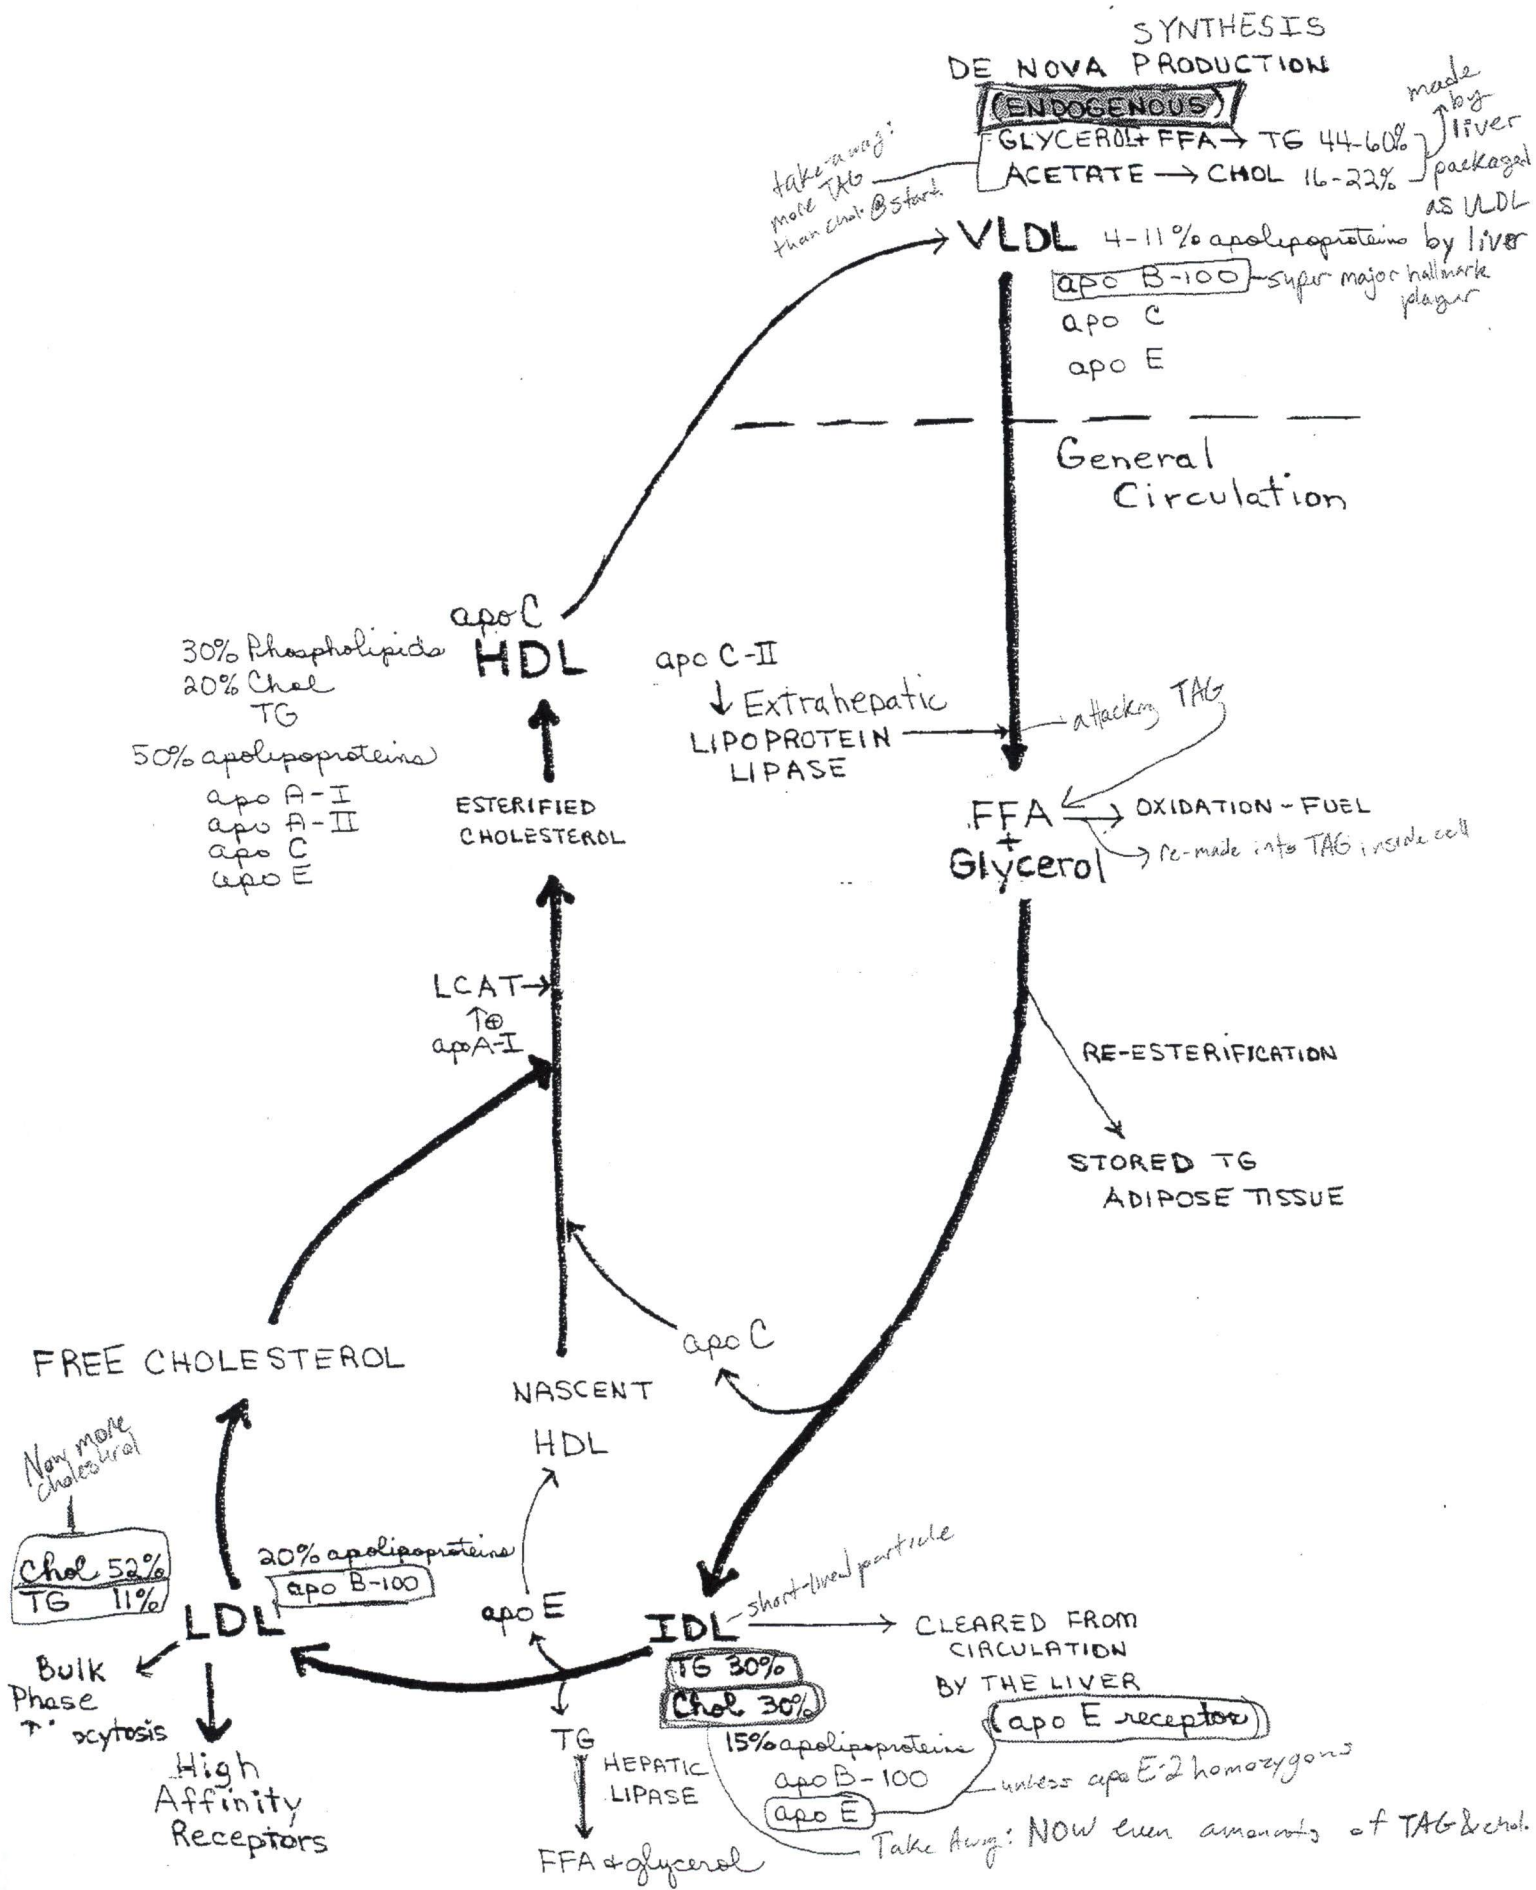 SYNTHESIS
DE NOVA PRODUCTION
(ENDOGENOUS)
GLYCEROL + FFA → TG 44-60%
ACETATE → CHOL 16-22%
made
by
liver
packaged
as VLDL
by liver
take-away:
more TAG
than chol. @ start.
VLDL 4-11% apolipoproteins
apo B-100 - super major hallmark
player
apo C
apo E
General
Circulation
apo C
HDL
30% Phospholipids
20% Chol
TG
50% apolipoproteins
apo A-I
apo A-II
apo C
apo E
apo C-II
↓ Extrahepatic
LIPOPROTEIN
LIPASE
attacking TAG
FFA → OXIDATION - FUEL
+
Glycerol
→ re-made into TAG inside cell
ESTERIFIED
CHOLESTEROL
LCAT→
↑⊕
apoA-I
RE-ESTERIFICATION
STORED TG
ADIPOSE TISSUE
apo C
FREE CHOLESTEROL
NASCENT
HDL
Now more
cholesterol
Chol 52%
TG 11%
20% apolipoproteins
apo B-100
LDL
apo E
IDL - short-lived particle
→ CLEARED FROM
CIRCULATION
BY THE LIVER
(apo E receptor)
TG 30%
Chol 30%
15% apolipoproteins
apo B-100
apo E
unless apo E-2 homozygous
Take Away: NOW even amounts of TAG & chol.
Bulk
Phase
ocytosis
High
Affinity
Receptors
TG
HEPATIC
LIPASE
FFA + glycerol